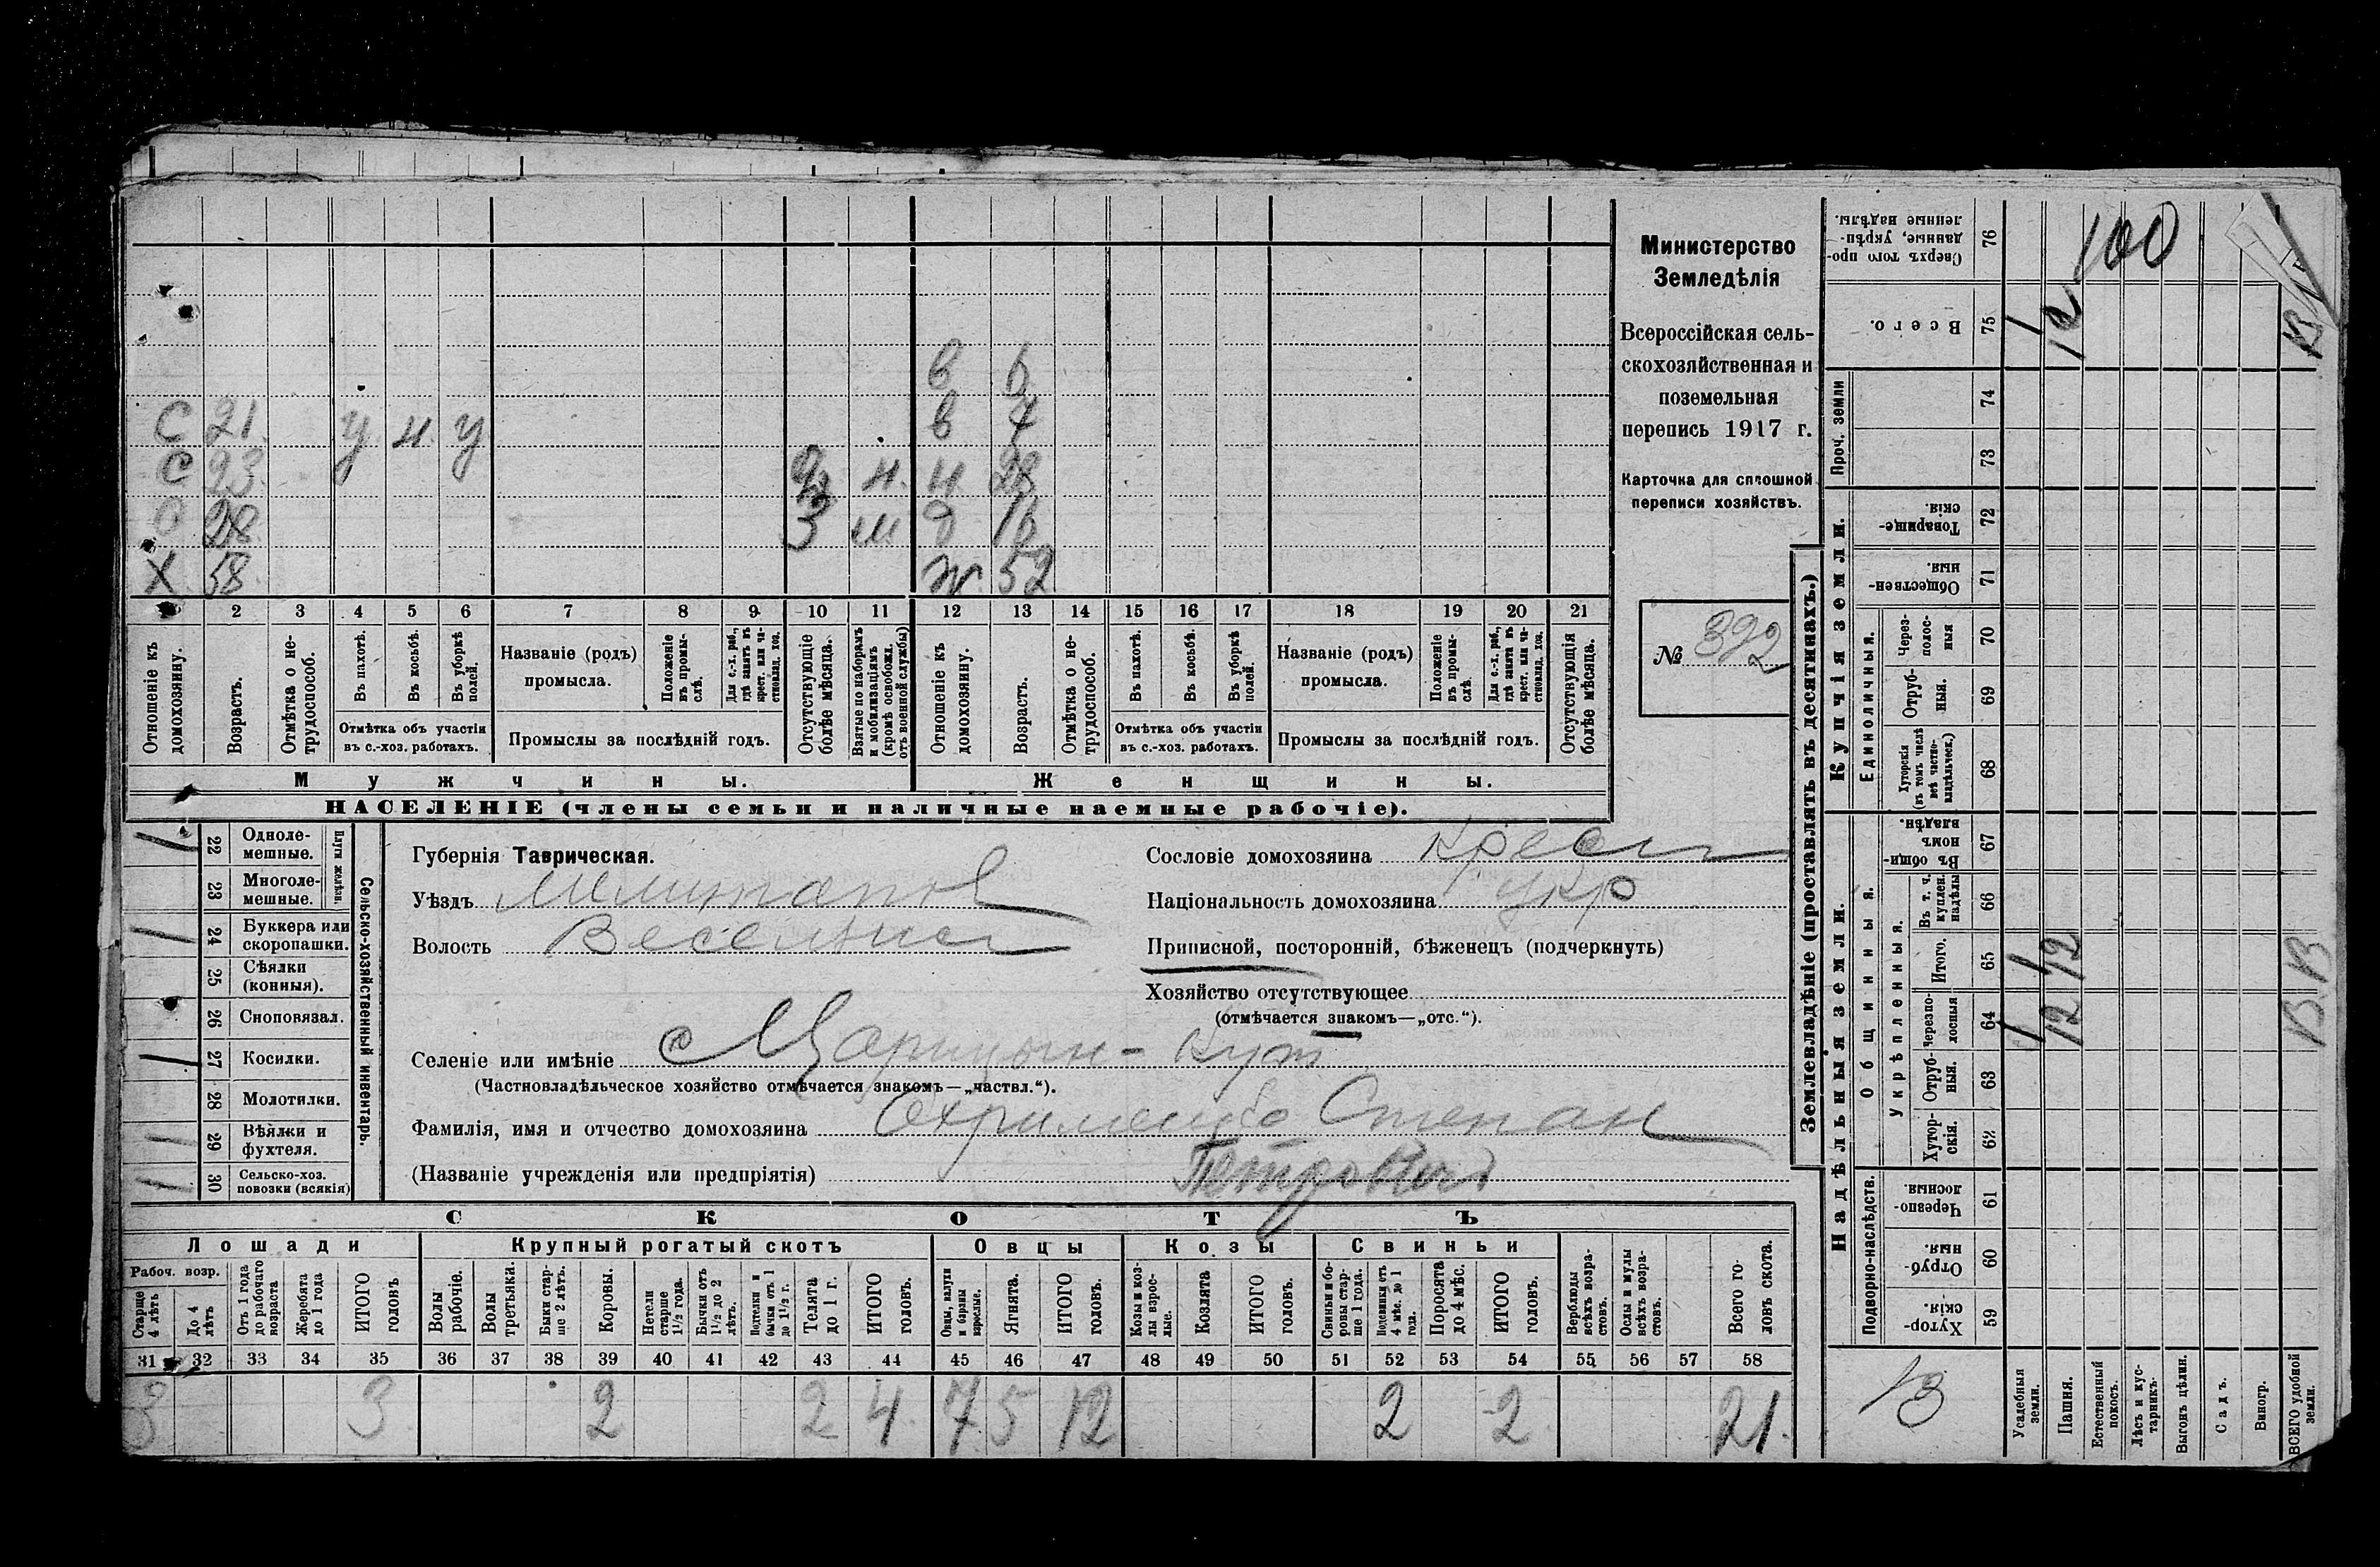 в 6
С 21. у н. у в 7
С 23. н. н. 28
С 28 3 м д 16
Х 58 ж. 52
2 3 4 5 6 7 8 9 10 11 12 13 14 15 16 17 18 19 20 21
Отношеніе къ домохозяину.
Возрастъ.
Отмѣтка о не-
трудоспособ.
Въ пахотѣ.
Въ косьбѣ.
Въ уборкѣ полей.
Отмѣтка объ участіи
въ с.-хоз. работахъ.
Названіе (родъ)
промысла.
Положеніе въ промы-
слѣ.
Для с.-х. раб., гдѣ занятъ въ крест. или ча-
стновлад. хоз.
Промыслы за послѣдній годъ.
Отсутствующіе болѣе мѣсяца.
Взятые по наборамъ и мобилизаціямъ (кромѣ освобожд. отъ военной службы)
Отношеніе къ домохозяину.
Возрастъ.
Отмѣтка о не-
трудоспособ.
Въ пахотѣ.
Въ косьбѣ.
Въ уборкѣ полей.
Отмѣтка объ участіи
въ с.-хоз. работахъ.
Названіе (родъ)
промысла.
Положеніе въ промы-
слѣ.
Для с.-х. раб., гдѣ занята въ крест. или ча-
стновлад. хоз.
Промыслы за послѣдній годъ.
Отсутствующія болѣе мѣсяца.
Мужчины.
Женщины.
НАСЕЛЕНІЕ (члены семьи и наличные наемные рабочіе).
Министерство
Земледѣлія
Всероссійская сель-
скохозяйственная и
поземельная
перепись 1917 г.
Карточка для сплошной
переписи хозяйствъ.
№ 392
1 22 Одноле-
мешные.
23 Многоле-
мешные.
Плуги желѣзн.
1 24 Буккера или
скоропашки.
25 Сѣялки
(конныя).
26 Сноповязал.
1 27 Косилки.
28 Молотилки.
1 29 Вѣялки и
фухтеля.
1 30 Сельско-хоз.
повозки (всякія)
Сельско-хозяйственный инвентарь.
Губернія Таврическая.
Уѣздъ Мелитопол
Волость Веселинс
Сословіе домохозяина крест
Національность домохозяина укр
Приписной, посторонній, бѣженецъ (подчеркнуть)
Хозяйство отсутствующее
(отмѣчается знакомъ—„отс.“).
Селеніе или имѣніе с Царицын-Кут
(Частновладѣльческое хозяйство отмѣчается знакомъ—„частвл.“).
Фамилія, имя и отчество домохозяина Охрименко Степан
(Названіе учрежденія или предпріятія) Петрович
СКОТЪ
Лошади
Рабоч. возр.
Старше 4 лѣтъ
До 4 лѣтъ
Отъ 1 года до рабочаго возраста
Жеребята до 1 года
ИТОГО головъ
Крупный рогатый скотъ
Волы рабочіе.
Волы третьяки.
Быки стар-
ше 2 лѣтъ.
Коровы.
Нетели старше 1½ года.
Бычки отъ 1½ до 2 лѣтъ.
Подтелки и бычки отъ 1 до 1½ г.
Телята до 1 г.
ИТОГО головъ.
Овцы
Овцы, валухи и бараны взрослые.
Ягнята.
ИТОГО головъ.
Козы
Козы и коз-
лы взрос-
лые.
Козлята
ИТОГО головъ.
Свиньи
Свиньи и бо-
ровы стар-
ше 1 года.
Подсвинки отъ 4 мѣс. до 1 года.
Поросята до 4 мѣс.
ИТОГО головъ.
Верблюды всѣхъ возра-
стовъ.
Ослы и мулы всѣхъ возра-
стовъ.
Всего го-
ловъ скота.
31 32 33 34 35 36 37 38 39 40 41 42 43 44 45 46 47 48 49 50 51 52 53 54 55 56 57 58
3 3 2 2 4 7 5 12 2 2 21.
Землевладѣніе (проставлять въ десятинахъ.)
Купчія земли.
Надѣльныя земли.
Сверхъ того про-
данные, укрѣп-
ленные надѣлы.
76 100
Всего.
75 1 12 13
Проч. земли
74
73
Товарище-
скія.
72
Обществен-
ныя.
71
Единоличныя.
Через-
полос-
ныя
70
Отруб-
ныя.
69
Хуторскія (въ томъ числѣ всѣ частно-
владѣльческ.)
68
Общинныя.
Въ общи-
номъ
владѣн.
67
Укрѣпленныя.
Въ т. ч. куплен. надѣлы
66
Итого.
65 1 12 13
Черезпо-
лосныя
64 1 12 13
Отруб-
ныя.
63
Хутор-
скія.
62
Подворно-наслѣдств.
Черезпо-
лосныя.
61
Отруб-
ныя.
60
Хутор-
скія.
59
13
Усадебныя земли.
Пашня.
Естественный покосъ.
Лѣсъ и кус-
тарникъ.
Выгонъ цѣлин.
Садъ.
Виногр.
ВСЕГО удобной земли.